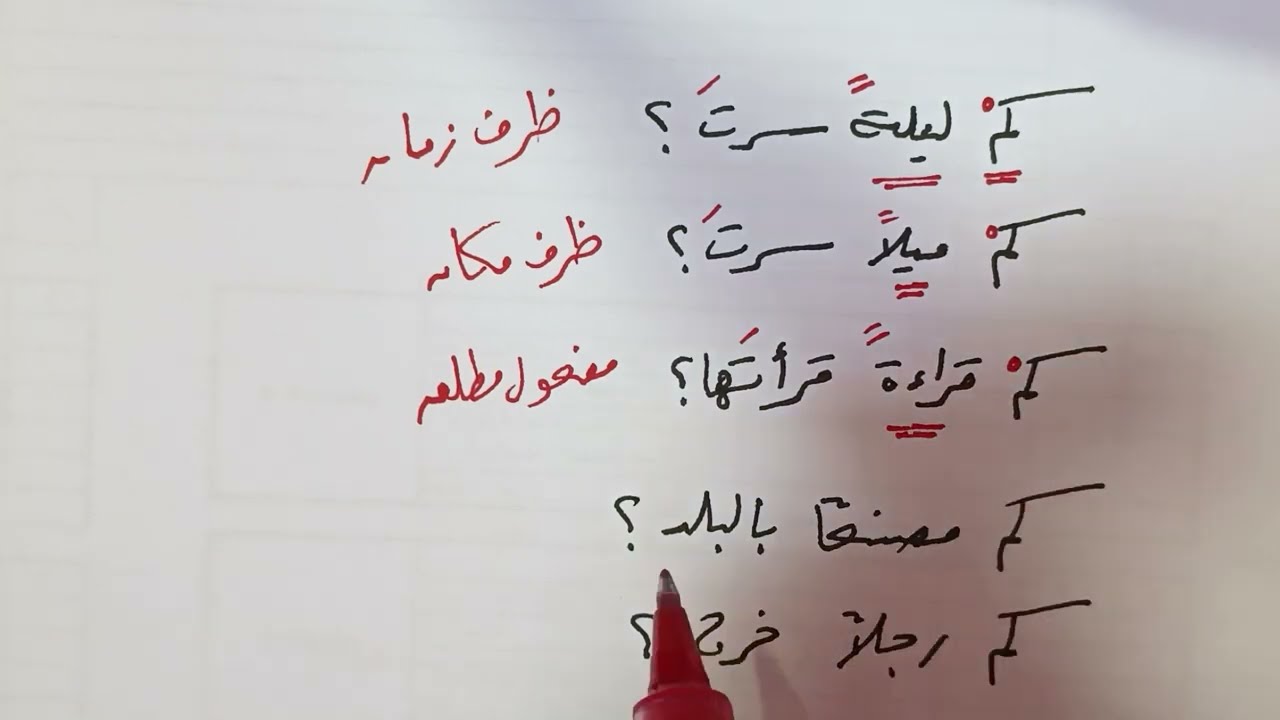 كمْ ليلةً سرتَ ؟ ظرف زمان
كمْ ميلاً سرتَ ؟ ظرف مكان
كمْ قراءةً قرأتَها ؟ مفعول مطلق
كم مصنعًا بالبلد ؟
كم رجلاً خرج ؟